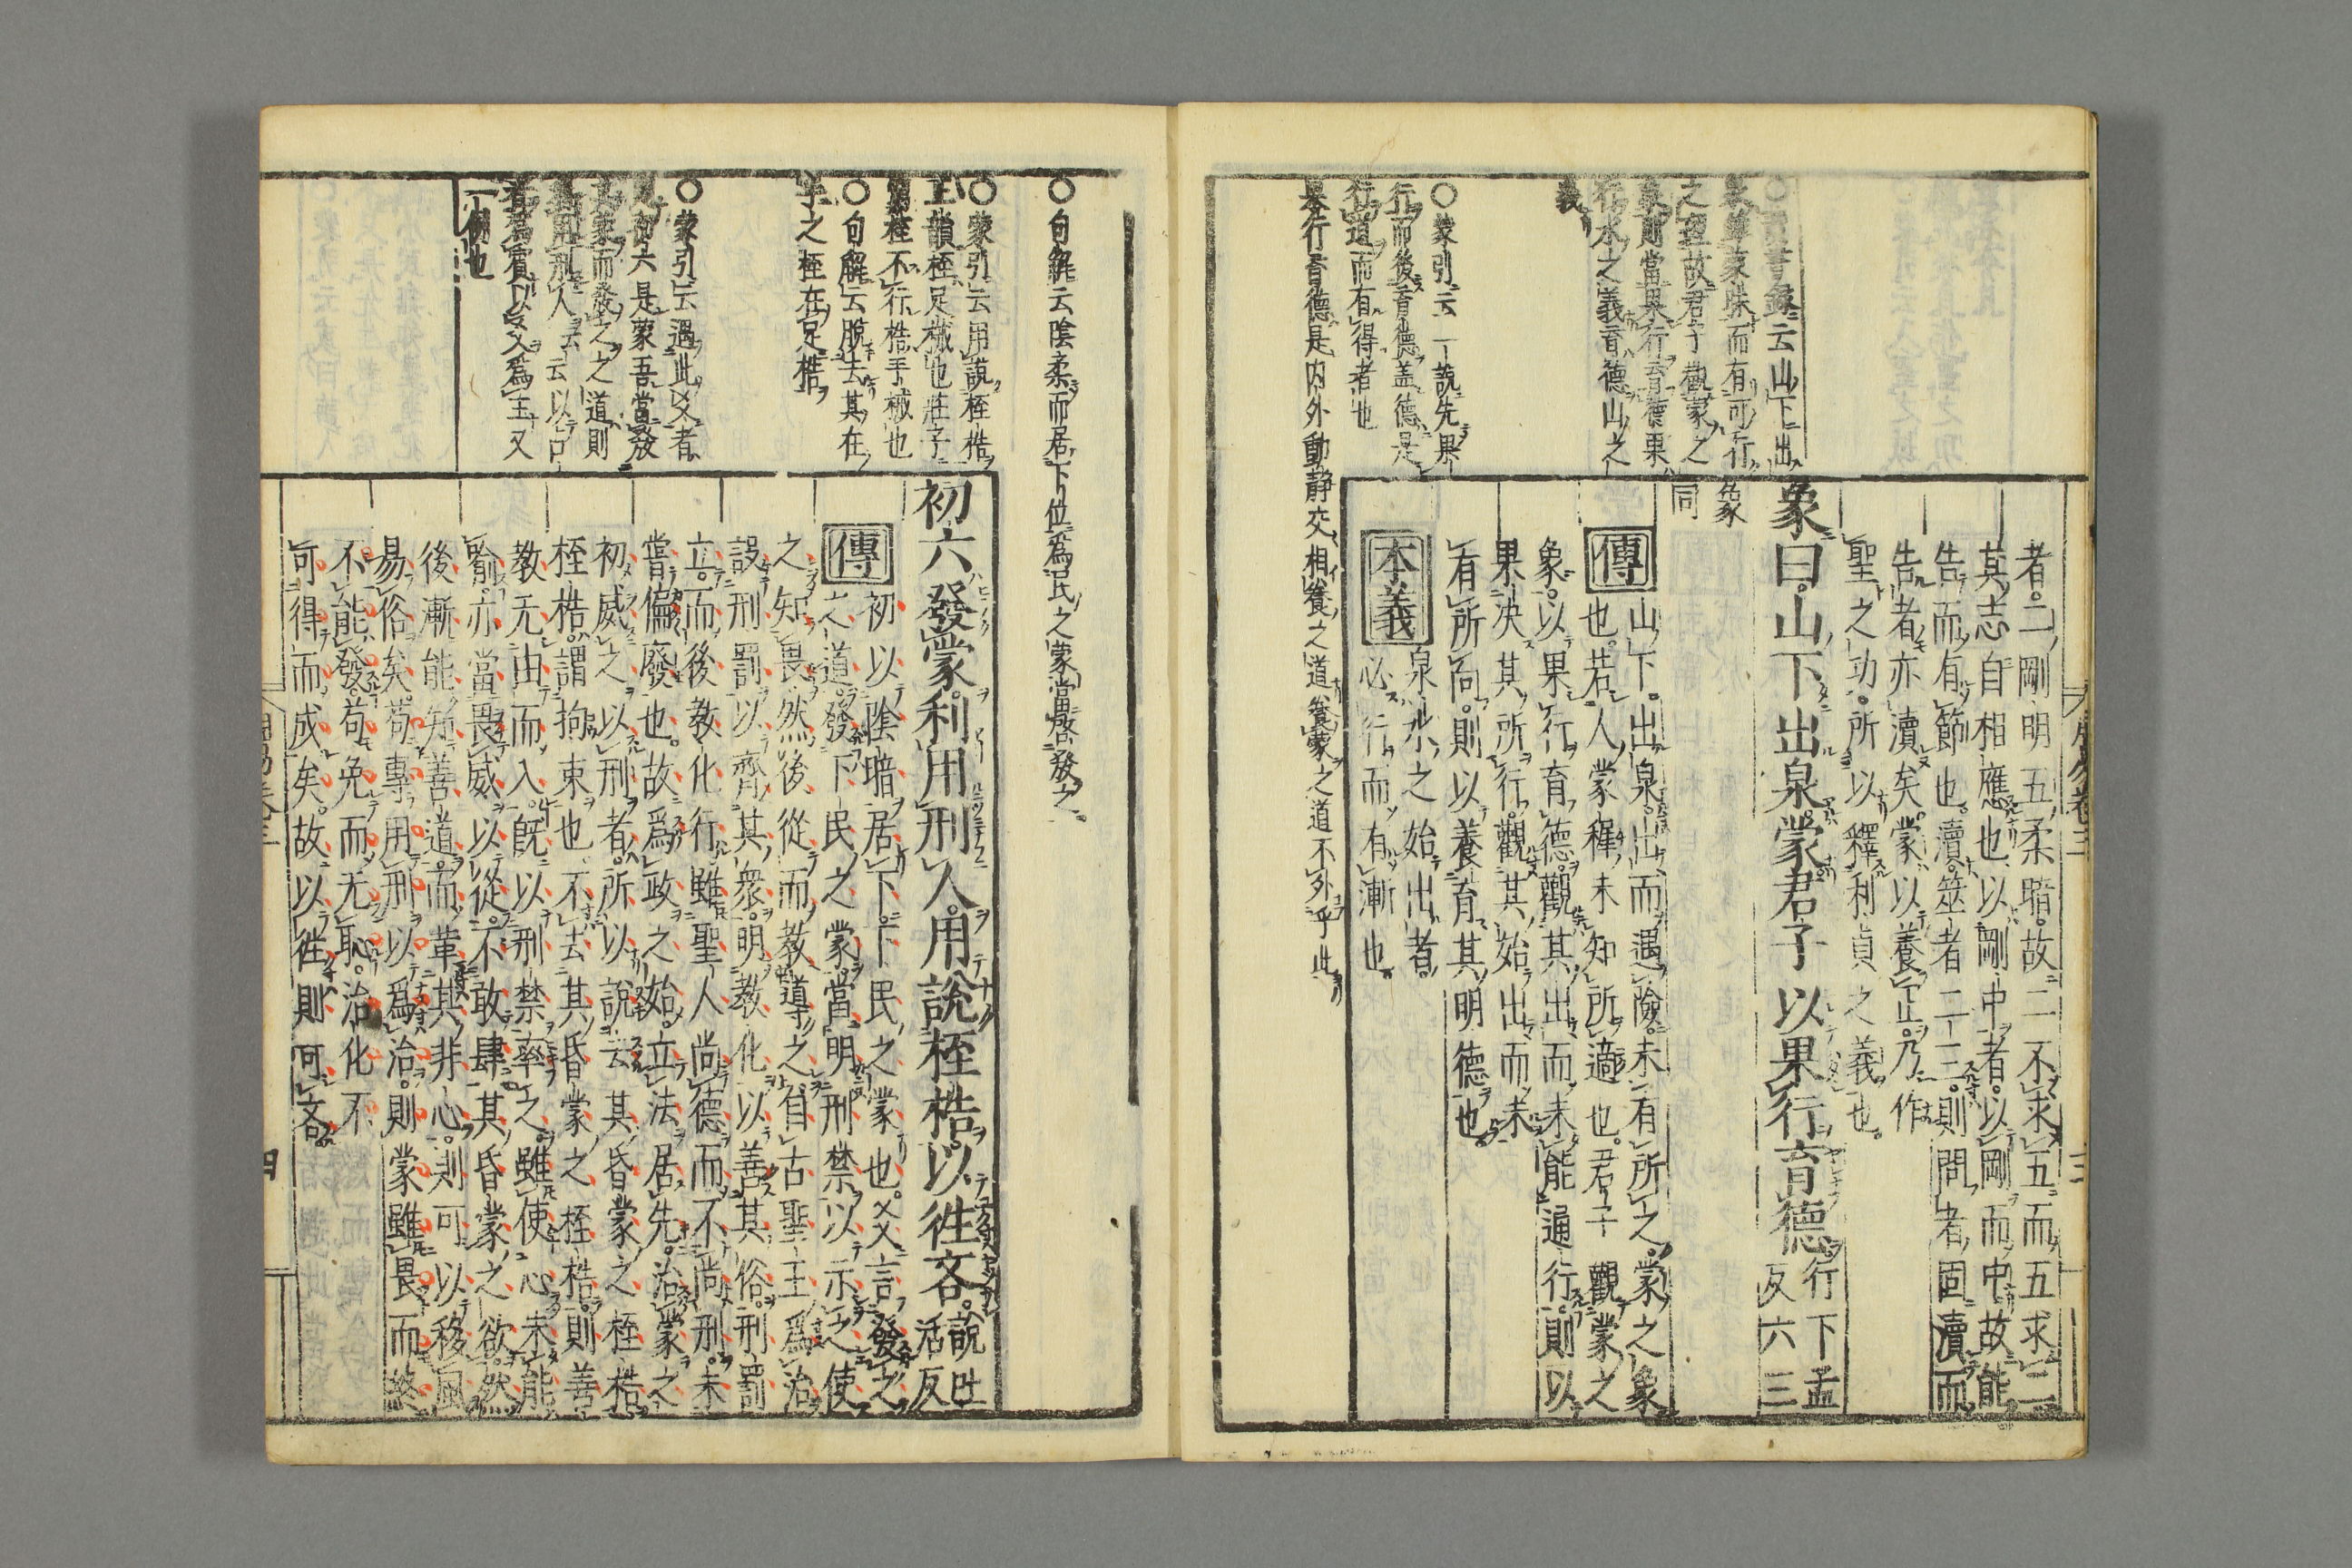 者二剛明五柔暗故二不求五而五求二
其志自相應也以剛中者以剛而中故能
告而有節也瀆筮者二三則問者固瀆而
告者亦瀆矣蒙以養正乃作
聖之功所以釋利貞之義也
象曰山下出泉蒙君子以果行育德行下孟反六三
象同
傳
山下出泉出而遇險未有所之蒙之象
也若人蒙穉未知所適也君子觀蒙之
象以果行育德觀其出而未能通行則以
果決其所行觀其始出而未
有所向則以養育其明德也
本義
泉水之始出者
必行而有漸也
云山下出
蒙昧而有可行
之理故君子觀蒙之
象則當果行育德果
行水之義育德山之
義
○蒙引云一說先果
行而後育德盖德是
行道而有得者也
果行育德是内外動靜交相養之道養蒙之道不外乎此
○句解云陰柔而居下位爲民之蒙當啓發之
○蒙引云用說桎梏
玉韻桎足械也莊子
桎不行梏手械也
○句解云脫去其在
手之桎在足梏
○蒙引云遇此爻者
初六是蒙吾當發
其蒙而發之之道則
利用刑人云云以占
者爲賓以爻爲主又
一例也
初六發蒙利用刑人用說桎梏以徃吝說吐活反
傳
初以陰暗居下下民之蒙也爻言發之
之道發下民之蒙當明刑禁以示之使
之知畏然後從而教導之自古聖王爲治
設刑罰以齊其衆明教化以善其俗刑罰
立而後教化行雖聖人尚德而不尚刑未
嘗偏廢也故爲政之始立法居先治蒙之
初威之以刑者所以說去其昏蒙之桎梏
桎梏謂拘束也不去其昏蒙之桎梏則善
教无由而入旣以刑禁率之雖使心未能
喻亦當畏威以從不敢肆其昏蒙之欲然
後漸能知善道而革其非心則可以移風
易俗矣苟專用刑以爲治則蒙雖畏而終
不能發苟免而无恥治化不
可得而成矣故以徃則可吝
四